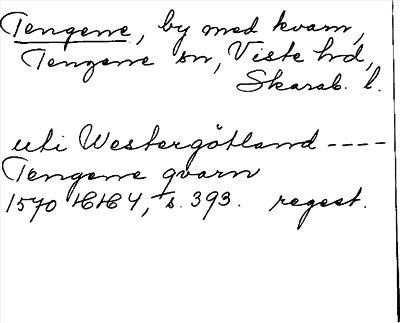 Tengene, by med kvarn,
Tengene sn, Viste hd,
Skarab. l.
uti Westergötland ----
Tengene qvarn
1570 HH 4, s. 393. regest.